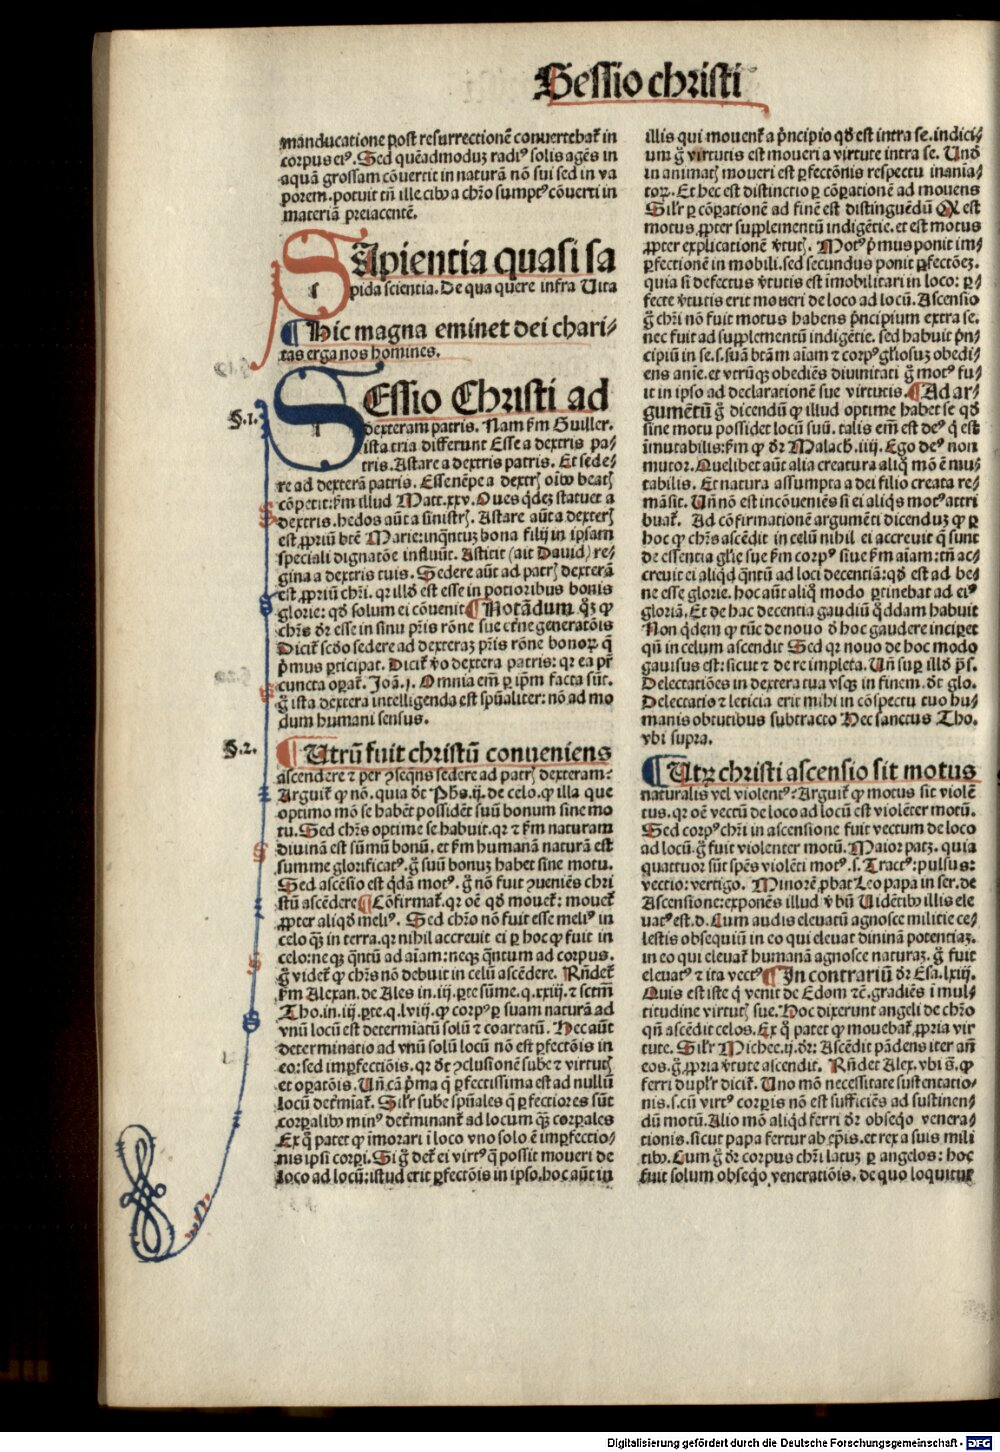 Sessio christi
manducatione post resurrectionē conuertebat᷑ in
corpus eiꝰ. Sed quēadmoduꝫ radiꝰ solis agēs in
aquā grossam cōuertit in naturā nō sui sed in va
porem. potuit tñ ille cibꝰ a chr̄o sumptꝰ cōuerti in
materiā preiacentē.
SApientia quasi sa
pida scientia. De qua quere infra Uita
¶ Hic magna eminet dei chari-
tas erga nos homines.
§.1.
SEssio Christi ad
dexteram patris. Nam ẜm Guiller.
ista tria differunt Esse a dextris pa-
tris. Astare a dextris patris. Et sede-
re ad dexterā patris. Esse nēpe a dextrꝭ oībꝰ beatꝭ
cōpetit: ẜm illud Matt. xxv. Oues qͥdeꝫ statuet a
dextris. hedos aūt a sinistrꝭ. Astare aūt a dexterꝭ
est ꝓpriū btē Marie: inqͣntuꝫ bona filij in ipsam
speciali dignatōe influūt. Astitit (ait Dauid) re-
gina a dextris tuis. Sedere aūt ad patrꝭ dexterā
est ꝓpriū chr̄i. qꝛ illd̓ est esse in potioribus bonis
glorie: qd̓ solum ei cōuenit ¶ Notandum qꝫ ꝙ
chr̄s dr̄ esse in sinu pr̄is rōne sue et̄ne generatōis
Dicit᷑ scd̓o sedere ad dexteraꝫ pr̄is rōne bonoꝝ q̄
pͥmus ꝑticipat. Dicit᷑ v̓o dextera patris: qꝛ ea pr̄
cuncta oꝑat᷑. Joā. j. Omnia em̄ ꝑ ip̄m facta sūt.
g̊ ista dextera intelligenda est spūaliter: nō ad mo
dum humani sensus.
§.2.
¶ Utrū fuit christū conueniens
ascendere ⁊ per ꝯseqn̄s sedere ad patrꝭ dexteram:
Arguit᷑ ꝙ nō. quia dt̄ Ph̄s. ij. de celo. ꝙ illa que
optimo mō se habēt possidēt suū bonum sine mo
tu. Sed chr̄s optime se habuit. qꝛ ⁊ ẜm naturam
diuinā est sūmū bonū. et ẜm humanā naturā est
summe glorificatꝰ. g̊ suū bonuꝫ habet sine motu.
Sed ascēsio est qͥdā motꝰ. g̊ nō fuit ꝯueniēs chri
stū ascēdere ¶ Cōfirmat᷑. qꝛ oē qd̓ mouet᷑: mouet᷑
ꝓpter aliqd̓ meliꝰ. Sed chr̄o nō fuit esse meliꝰ in
celo qͣꝫ in terra. qꝛ nihil accreuit ei ꝑ hoc ꝙ fuit in
celo: neqꝫ qͣntū ad aīam: neqꝫ qͣntum ad corpus.
g̊ videt᷑ ꝙ chr̄s nō debuit in celū ascēdere. Rn̄det᷑
ẜm Alexan. de Ales in. iij. ꝑte sūme. q. xxiij. ⁊ sctm̄
Tho. in. iij. ꝑte. q. lviij. ꝙ corpꝰ ꝑ suam naturā ad
vnū locū est determiatū solū ⁊ coartatū. Hec aūt
determinatio ad vnū solū locū nō est ꝑfectōis in
eo: sed imꝑfectiōis. qꝛ dt̄ ꝯclusionē sube ⁊ virtutꝭ
et oꝑatōis. Un̄ cā pͥma q̄ ꝑfectissima est ad nullū
locū det̓miat᷑. Sil̓r sube spūales q̄ ꝑfectiores sūt
corꝑalibꝰ minꝰ det̓minant᷑ ad locum qͣꝫ corꝑales
Ex qͦ patet ꝙ īmorari ī loco vno solo ē imꝑfectio-
nis ipsi corꝑi. Si g̊ det᷑ ei virtꝰ qͣ possit moueri de
loco ad locū: istud erit ꝑfectōis in ipso. hoc aūt in
illis qui mouent᷑ a pͥncipio qd̓ est intra se. indici-
um g̊ virtutis est moueri a virtute intra se. Und̓
in animatꝭ moueri est ꝑfectōnis respectu inania-
toꝝ. Et hec est distinctio ꝑ cōꝑationē ad mouens
Sil̓r ꝑ cōꝑationē ad finē est distinguēdū Qꝛ est
motus ꝓpter supplementū indigētie. et est motus
ꝓpter explicationē v̓tutꝭ. Motꝰ pͥmus ponit im-
ꝑfectionē in mobili. sed secundus ponit ꝑfectōeꝫ.
quia si defectus v̓tutis est īmobilitari in loco: ꝑ-
fecte v̓tutis erit moueri de loco ad locū. Ascensio
g̊ chr̄i nō fuit motus habens pͥncipium extra se.
nec fuit ad supplementū indigētie. sed habuit pͥn-
cipiū in se. s. suā btām aīam ⁊ corpꝰ gl̓iosuꝫ obedi-
ens anīe. et vtrūqꝫ obediēs diuinitati g̊ motꝰ fu-
it in ipso ad declarationē sue virtutis. ¶ Ad ar-
gumētū g̊ dicendū ꝙ illud optime habet se qd̓
sine motu possidet locū suū. talis em̄ est deꝰ qͥ est
īmutabilis: ẜm ꝙ dr̄ Malach. iiij. Ego deꝰ non
mutor. Quelibet aūt alia creatura aliqͦ mō ē mu-
tabilis. Et natura assumpta a dei filio creata re-
māsit. Un̄ nō est incōueniēs si ei aliqͥs motꝰ attri
buat᷑. Ad cōfirmationē argumēti dicenduꝫ ꝙ ꝑ
hoc ꝙ chr̄s ascēdit in celū nihil ei accreuit qͥ sunt
de essentia gl̓ie sue ẜm corpꝰ siue ẜm aīam: tn̄ ac-
creuit ei aliqͥd qͣntū ad loci decentiā: qd̓ est ad be-
ne esse glorie. hoc aūt aliqͦ modo ꝑtinebat ad eiꝰ
gloriā. Et de hac decentia gaudiū qͦddam habuit
Non qͥdem ꝙ tūc de nouo d̓ hoc gaudere inciꝑet
qn̄ in celum ascendit Sed qꝛ nouo de hoc modo
gauisus est: sicut ⁊ de re impleta. Un̄ suꝑ illd̓ ps̄.
Delectatiōes in dextera tua vsqꝫ in finem. dt̄ glo.
Delectatis ⁊ leticia erit mihi in cōspectu tuo hu-
manis obtutibus subtracto Hec sanctus Tho.
vbi supra.
¶ Utꝝ christi ascensio sit motus
naturalis vel violentꝰ: Arguit᷑ ꝙ motus sit violē
tus. qꝛ oē vectū de loco ad locū est violēter motū.
Sed corpꝰ chr̄i in ascensione fuit vectum de loco
ad locū. g̊ fuit violenter motū. Maior patꝫ. quia
quattuor sūt spēs violēti motꝰ. s. Tractꝰ: pulsus:
vectio: vertigo. Minorē ꝓbat Leo papa in ser. de
Ascensione: exponēs illud v̓bū Uidētibꝰ illis ele
uatꝰ est. d. Cum audis eleuatū agnosce militie ce-
lestis obsequiū in eo qui eleuat diuinā potentiaꝫ.
in eo qui eleuat᷑ humanā agnosce naturaꝫ. g̊ fuit
eleuatꝰ ⁊ ita vectꝰ ¶ In contrariū dr̄ Esa. lxiij.
Quis est iste qͥ venit de Edom ⁊c̄. gradiēs ī mul-
titudine virtutꝭ sue. Hoc dixerunt angeli de chr̄o
qn̄ ascēdit celos. Ex qͦ patet ꝙ mouebat᷑ ꝓpria vir
tute. Sil̓r Michee. ij. dr̄: Ascēdit pādens iter an̄
eos. g̊ ꝓpria v̓tute ascendit. Rn̄det Alex. vbi s̄. ꝙ
ferri dupl̓r dicit᷑. Uno mō necessitate sustentatio-
nis. s. cū virtꝰ corꝑis nō est sufficiēs ad sustinen-
dū motū. Alio mō aliqͥd ferri dr̄ obseqͥo venera-
tionis. sicut papa fertur ab ep̄is. et rex a suis mili
tibꝰ. Cum g̊ dr̄ corpus chr̄i latuꝫ ꝑ angelos: hoc
fuit solum obseqͥo venerationis. de quo loquitur
Digitalisierung gefördert durch die Deutsche Forschungsgemeinschaft - DFG